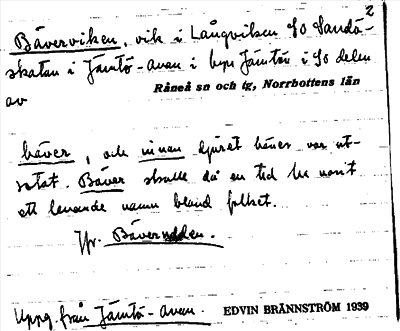 2
Bäverviken, vik i Långviken SO Sandö-
skatan i Jämtö-avan i byn Jämtön i SO delen
av Råneå sn och tg, Norrbottens län
bäver, och innan djuret bäver var ut-
rotat. Bäver skulle då en tid ha varit
ett levande namn bland folket.
Jfr. Bäverudden.
Uppg. från Jämtö-avan. EDVIN BRÄNNSTRÖM 1939